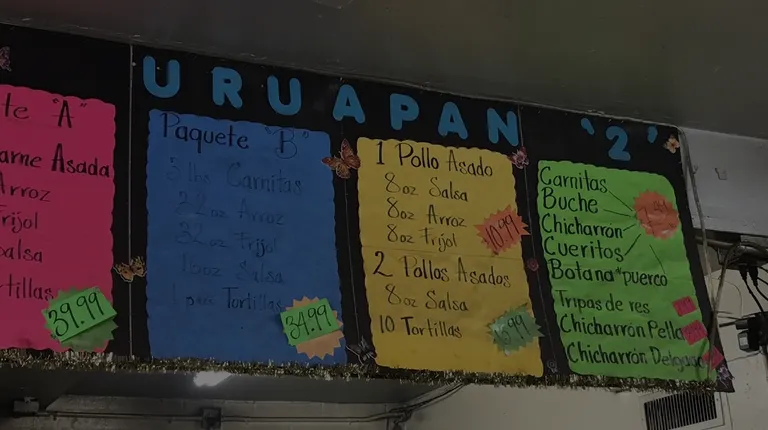 URUAPAN "2"
te "A"
arne Asada
Arroz
Frijol
Salsa
rtillas
39.99
Paquete "B"
3 lbs Carnitas
32 oz Frijol
Salsa
Tortillas
34.99
1 Pollo Asado
8oz Salsa
8oz Arroz
8oz Frijol
10.99
2 Pollos Asados
8oz Salsa
10 Tortillas
Carnitas
Buche
Chicharron
Cueritos
Botana*puerco
Tripas de res
Chicharrón Pella
Chicharrón Delgado